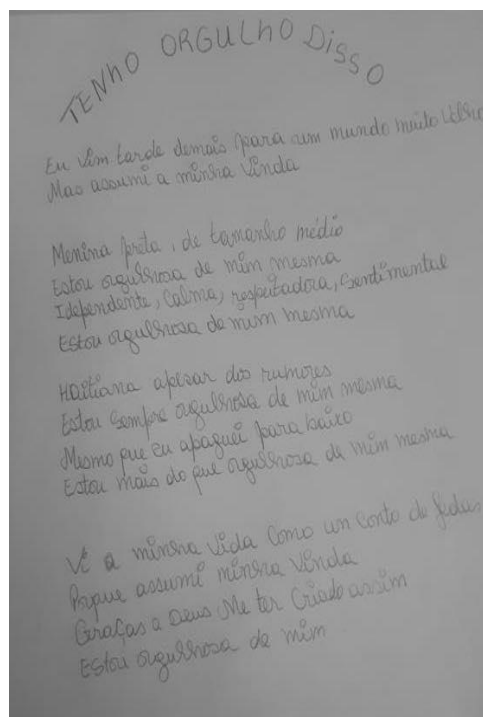 TENHO ORGULHO DISSO
Eu vim tarde demais para um mundo muito velho
Mas assumi a minha vinda
Menina preta, de tamanho médio
Estou orgulhosa de mim mesma
Idependente, calma, respeitadora, sentimental
Estou orgulhosa de mim mesma
Haitiana apesar dos rumores
Estou sempre orgulhosa de mim mesma
Mesmo que eu apaguei para baixo
Estou mais do que orgulhosa de mim mesma
Vê a minha vida como un conto de fadas
Porque assumi minha vinda
Graças a Deus Me ter criado assim
Estou orgulhosa de mim